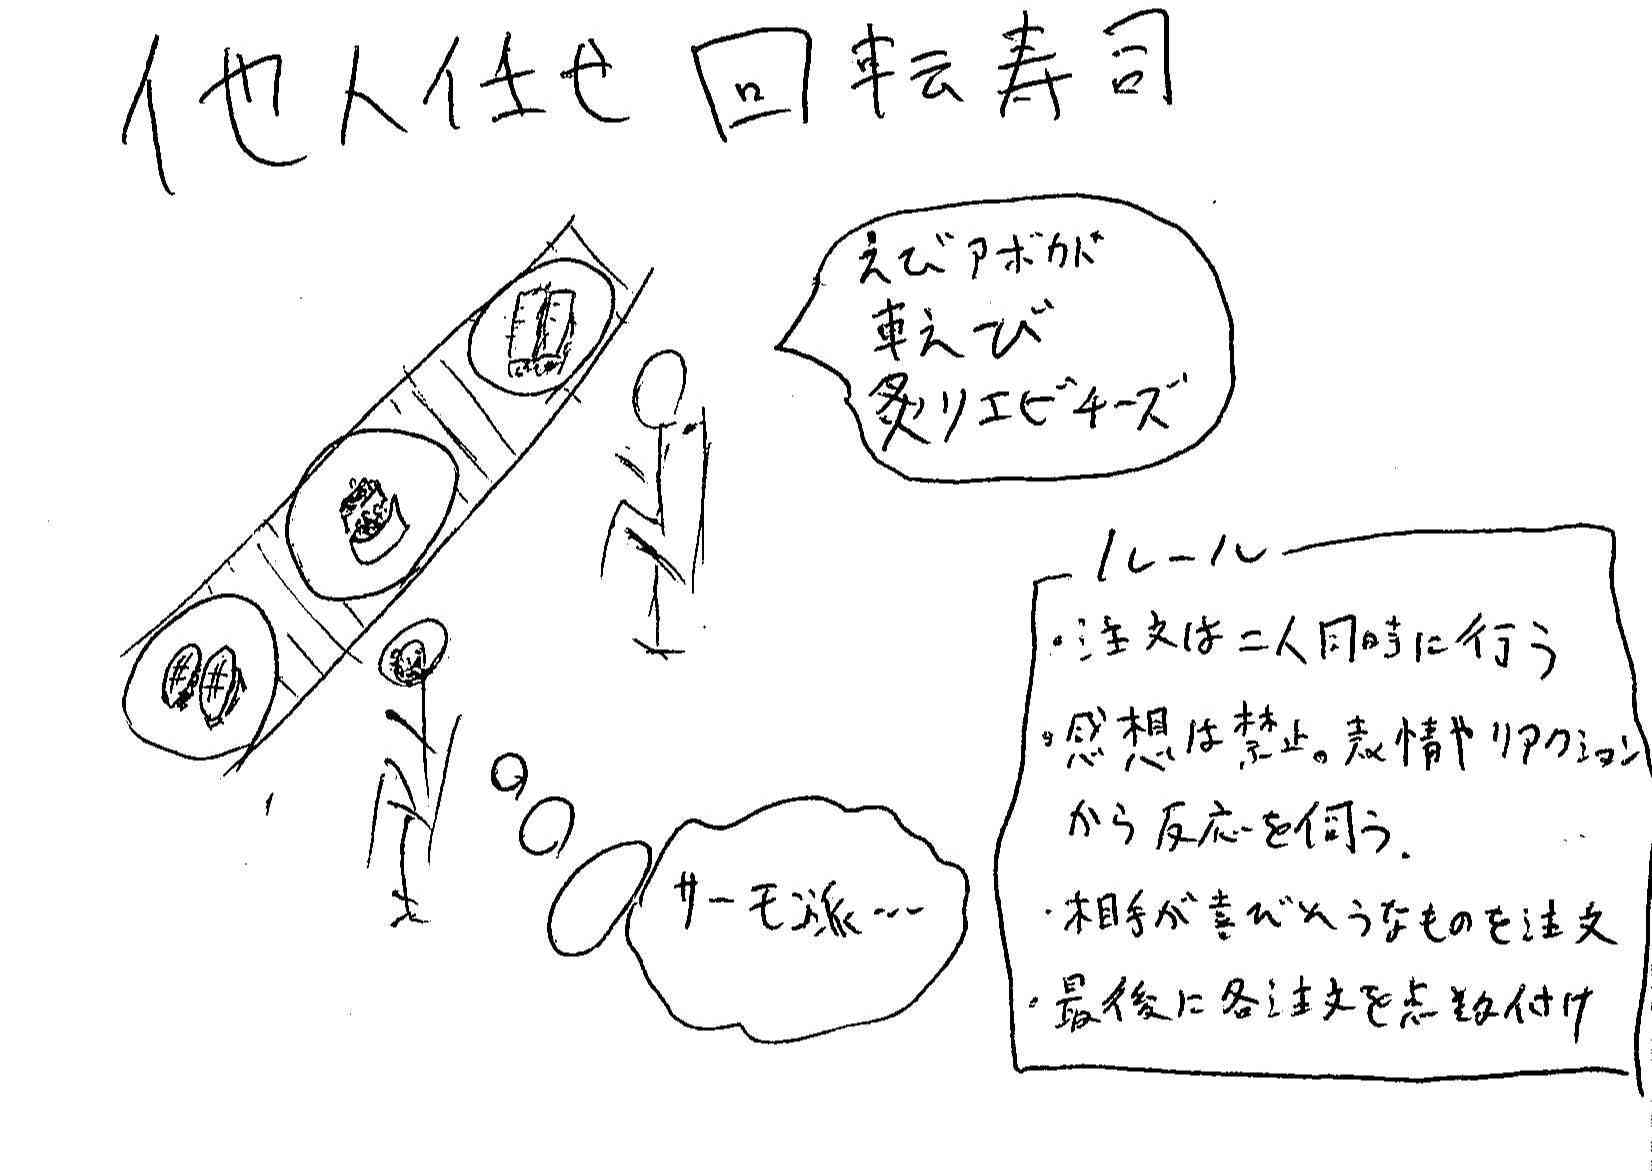 他人任せ回転寿司
えびアボカド
車えび
炙りエビチーズ
サーモン派…
ルール
・注文は二人同時に行う
・感想は禁止。表情やリアクション
から反応を伺う.
・相手が喜びそうなものを注文
・最後に各注文を点数付け